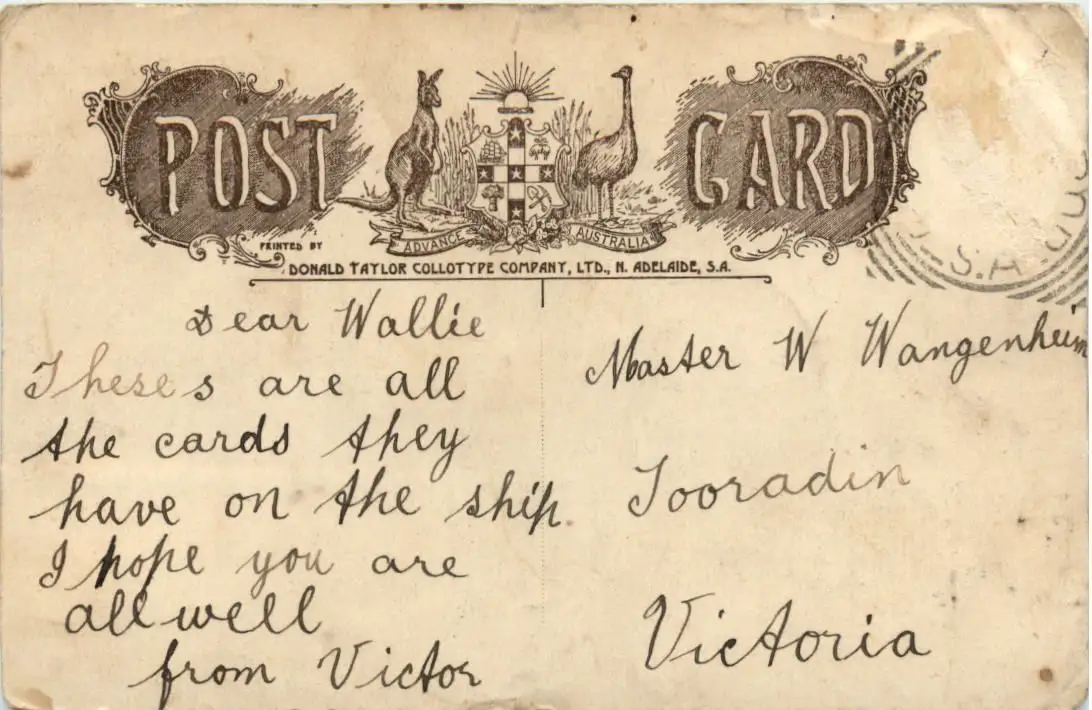 POST CARD
ADVANCE AUSTRALIA
PRINTED BY
DONALD TAYLOR COLLOTYPE COMPANY, LTD., N. ADELAIDE, S.A.
Dear Wallie
Theses are all
the cards they
have on the ship.
I hope you are
all well
from Victor
Master W Wangenheim
Tooradin
Victoria
S.A